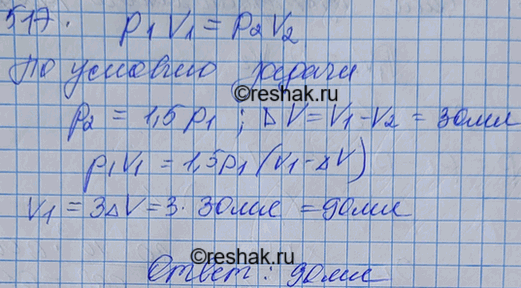 517. p₁V₁ = p₂V₂
По условию задачи
©reshak.ru
p₂ = 1,5p₁ ; ΔV = V₁ - V₂ = 30мл
p₁V₁ = 1,5p₁ (V₁ - ΔV)
V₁ = 3ΔV = 3 · 30мл = 90мл
©reshak.ru
Ответ : 90мл